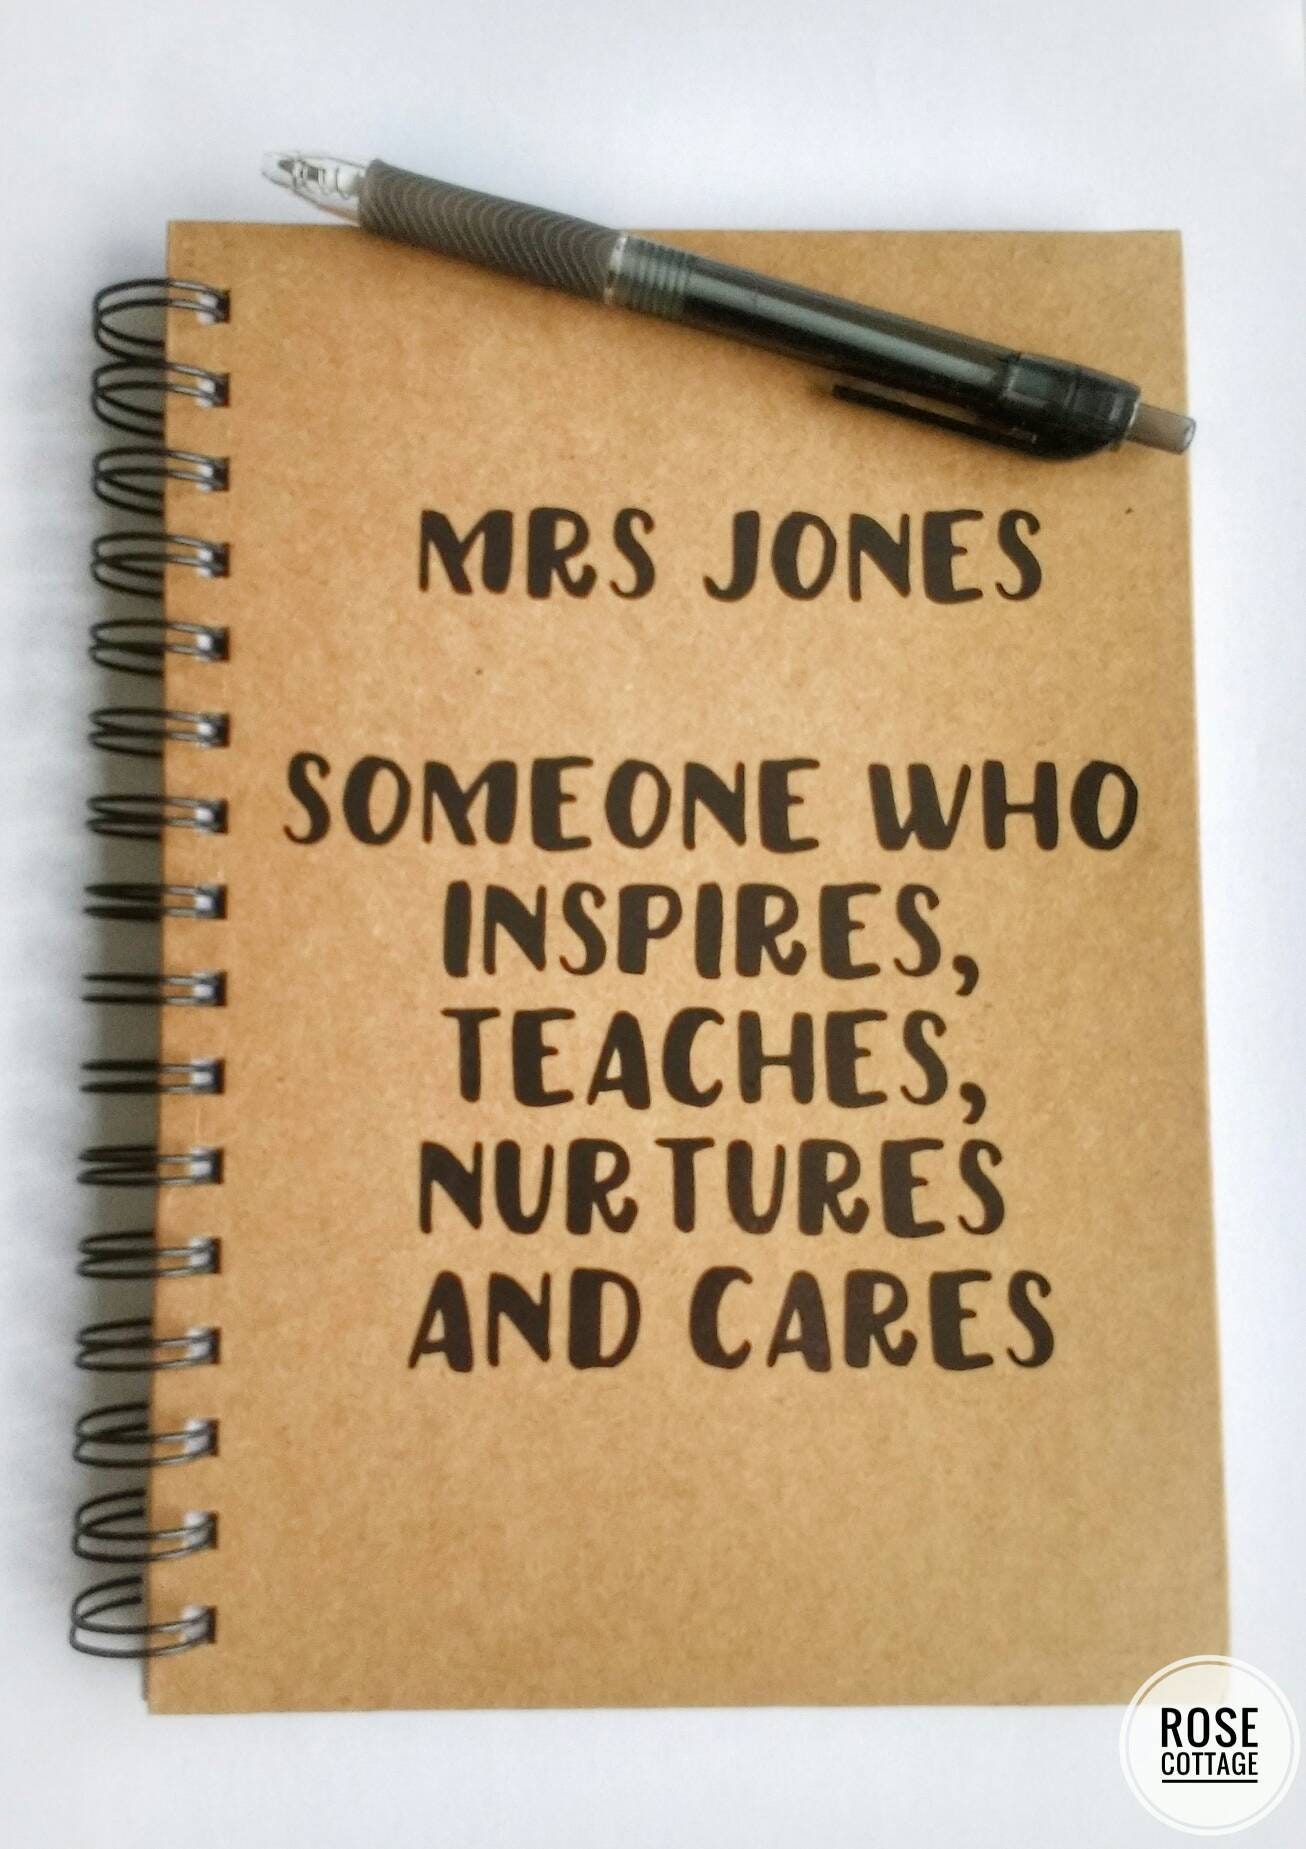 MRS JONES
SOMEONE WHO
INSPIRES,
TEACHES,
NURTURES
AND CARES
ROSE
COTTAGE